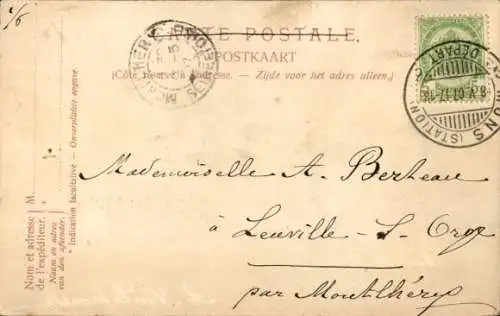 1/6
CARTE POSTALE
POSTKAART
(Côté réservé à l'adresse. — Zijde voor het adres alleen.)
MONS (STATION)
DÉPART
Mademoiselle A. Berheau
à Leuville-S-Orge
par Montlhéry
Nom et adresse
de l'expéditeur.
Naam en adres
van den afzender.
* Indication facultative — Onverplichte opgave
M